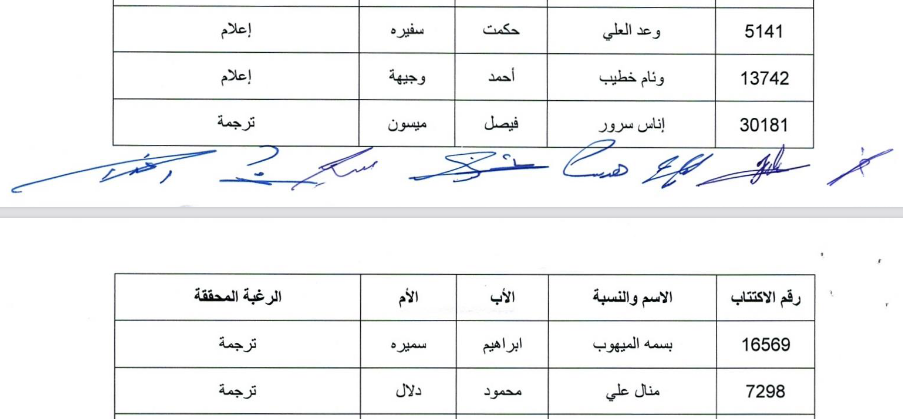 5141 وعد العلي حكمت سفيره إعلام
13742 ونام خطيب أحمد وجيهة إعلام
30181 إناس سرور فيصل ميسون ترجمة
رقم الاكتتاب الاسم والنسبة الأب الأم الرغبة المحققة
16569 بسمه الميهوب ابراهيم سميره ترجمة
7298 منال علي محمود دلال ترجمة